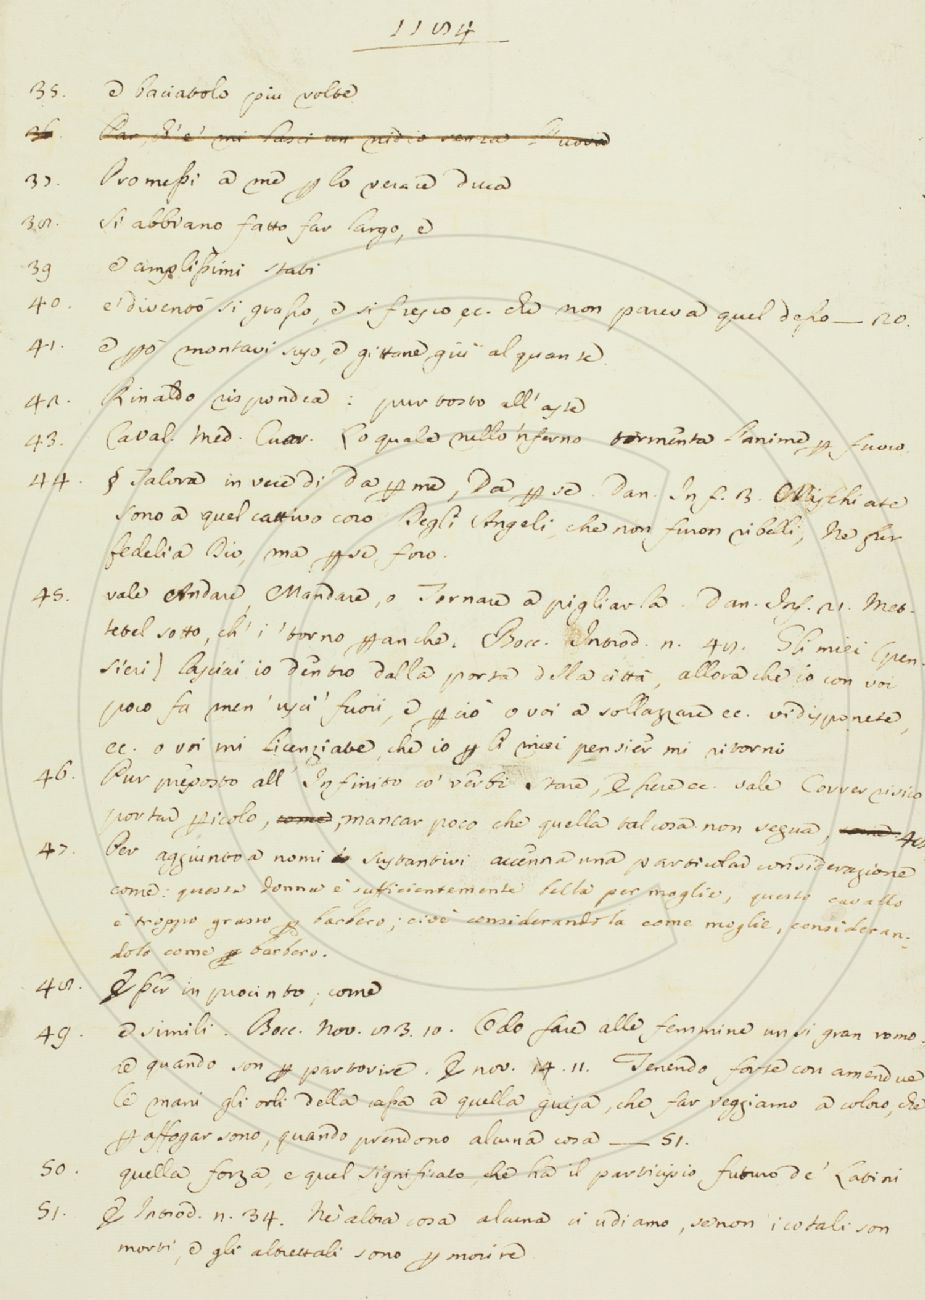 1184
35. e baciatolo piu volte
36. Par, ch'e' mi lasci un nidio senza l'uova
37. Promessi a me p lo verace duca
38. si abbiano fatto far largo, e
39 e amplissimi stabi
40. e' diventò si grasso, e si fresco ec. che non pareva quel desso — 20.
41. e pò montavi suso, e gittone giù alquante
42. Rinaldo rispondea: pur tosto all'aste
43. Caval. Med. Cuor. Lo quale nello 'nferno tormenta l'anime p fuoco
44. § Talora in vece di Da p me, Da p se. Dan. Inf. 3. Mischiate
sono a quel cattivo coro Degli Angeli, che non furon ribelli, Ne fur
fedeli a Dio, ma p se foro.
45. vale Andare, Mandare, o Tornare a pigliarla. Dan. Inf. 21. Met-
tetel sotto, ch' i' torno p anche. Bocc. Introd. n. 48. Gli miei (pen-
sieri) lasciai io dentro dalla porta della città, allora che io con voi
poco fa men' uscì' fuori, e p ciò o voi a sollazzare ec. vi disponete,
ec. o voi mi licenziate, che io p li miei pensier mi ritorni
46. Pur preposto all' Infinito co' verbi Stare, Essere ec. vale Correr risico
portar picolo, come, mancar poco che quella tal cosa non segua, come 48
47. Per aggiunto a nomi sustantivi accenna una particular considerazione
come: questa donna è sufficientemente bella per moglie, questo cavallo
è troppo grasso p barbero; cioè considerandola come moglie, consideran-
dolo come p barbero.
48. E per in procinto; come
49. e simili. Bocc. Nov. 83. 10. Odo fare alle femmine un si gran romo-
re quando son p partorire. E nov. 14. 11. Tenendo forte con amendue
le mani gli orli della cassa a quella guisa, che far veggiamo a coloro, che
p affogar sono, quando prendono alcuna cosa — 51.
50. quella forza, e quel significato che ha il participio futuro de' Latini
51. E Introd. n. 34. Ne altra cosa alcuna ci udiamo, se non i cotali son
morti, e gli altrettali sono p morire